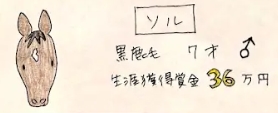 ソル
黒鹿毛 7才 ♂
生涯獲得賞金 36 万円